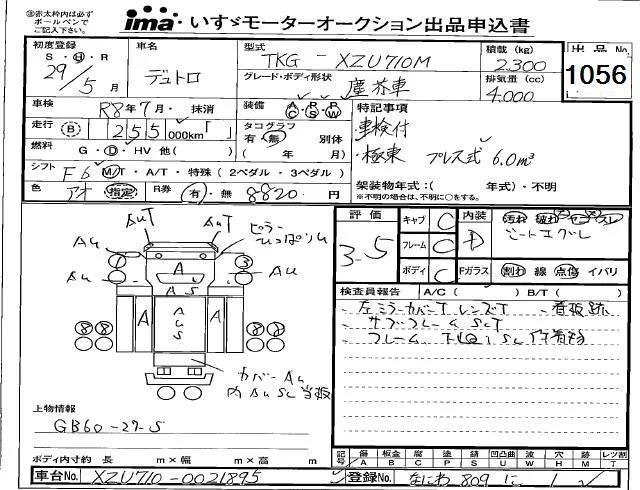 ※赤太枠内は必ず
ボールペンで
ご記入下さい。
ima いすゞモーターオークション出品申込書
初度登録
S・H・R
29/5月
車名
デュトロ
型式
TKG-XZU710M
グレード・ボディ形状
塵芥車
積載 (kg)
2.300
排気量 (cc)
4.000
出品No.
1056
車検
R8年7月・抹消
装備 A/C P/S P/W
特記事項
走行
(B) 255 000km「 」
タコグラフ
有・無 別体
( 年 月)
燃料
G・D・HV 他( )
・車検付
・極東 プレス式 6.0m³
シフト
F6 M/T・A/T・特殊(2ペダル・3ペダル)
架装物年式:( 年式)・不明
※不明の場合は、不明に○をする。
色
アオ 指定
R券
有・無 8820円
AuT AuT
ピラー
Au Au
A
A S
A A
A
U
S
3
8 8 8 8
カバーAu
評価
3-5
キャブ C
フレーム C
ボディ C
内装
D
汚れ 破れ コゲ スレ
シートコゲし
Fガラス
割れ 線 点傷 イバリ
検査員報告 A/C( ) B/T( )
・左ミラーカバーT レンズT ・看板跡
・サブフレームSCT
・フレーム
上物情報
GB60-27-5
ボディ内寸約 長 m×幅 m×高 m
記号
傷 A
板金 B
腐 C
塗 P
錆 S
凹凸曲 U
波 W
穴 H
飛 M
レツ割 T
車台No. XZU710-0021895
登録No. なにわ 809 に 1